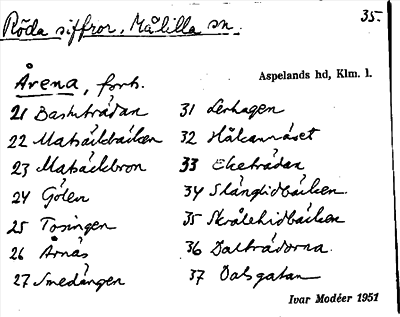 Röda siffror, Målilla sn. 35.
Årena, forts. Aspelands hd, Klm. l.
21 Bastuträdan
22 Matsäckbäcken
23 Matsäckbron
24 Gölen
25 Tosingen
26 Årnäs
27 Smedängen
31 Lerhagen
32 Håkannäset
33 Eketrädan
34 Slånglidbäcken.
35 Skrålehidbäcken
36 Dalträdorna.
37 Dalsgatan
Ivar Modéer 1951